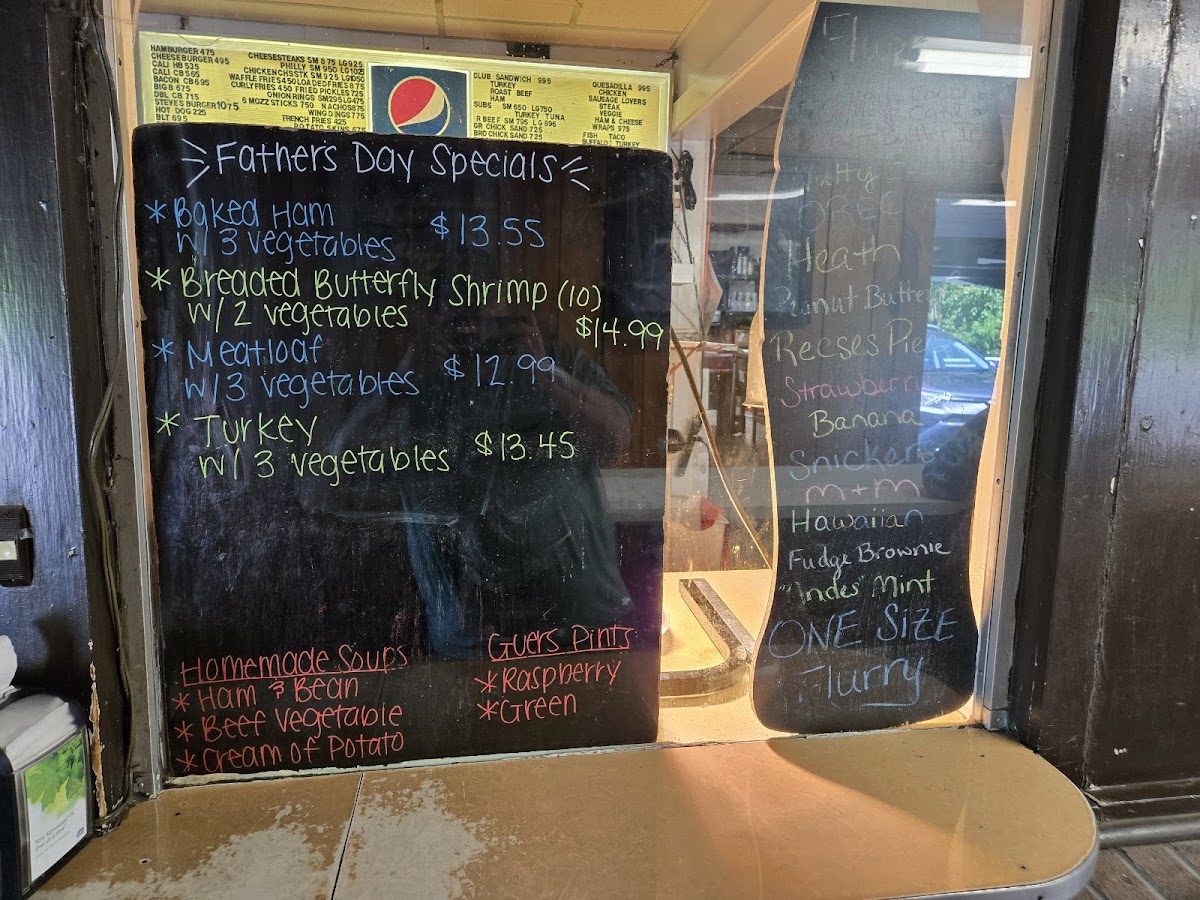 HAMBURGER 475
CHEESEBURGER 495
CALI HB 535
CALI CB 565
BACON CB 695
BIG B 675
DBL CB 715
STEVES BURGER 1075
HOT DOG 225
BLT 695
CHEESESTEAKS SM 875 LG 925
PHILLY SM 950 LG 1025
CHICKEN CHSSTK SM 925 LG 1050
WAFFLE FRIES 450 LOADED FRIES 875
CURLY FRIES 450 FRIED PICKLES 725
ONION RINGS SM 295 LG 475
6 MOZZ STICKS 750 NACHOS 875
WING DINGS 775
FRENCH FRIES 425
POTATO SKINS 675
CLUB SANDWICH 995
TURKEY
ROAST BEEF
HAM
SUBS SM 650 LG 750
TURKEY TUNA
R BEEF SM 795 LG 895
GR CHICK SAND 725
BRD CHICK SAND 725
QUESADILLA 995
CHICKEN
SAUSAGE LOVERS
STEAK
VEGGIE
HAM & CHEESE
WRAPS 975
FISH TACO
BUFFALO TURKEY
Father's Day Specials
* Baked Ham
w/ 3 vegetables $13.55
* Breaded Butterfly Shrimp (10)
w/ 2 vegetables
$14.99
* Meatloaf
w/ 3 vegetables $12.99
* Turkey
w/ 3 vegetables $13.45
Homemade Soups
* Ham & Bean
* Beef Vegetable
* Cream of Potato
Guers Pints
* Raspberry
* Green
Heath
Reeses Pie
Strawberry
Banana
Snickers
m+m
Hawaiian
Fudge Brownie
Mint
ONE SIZE
Flurry